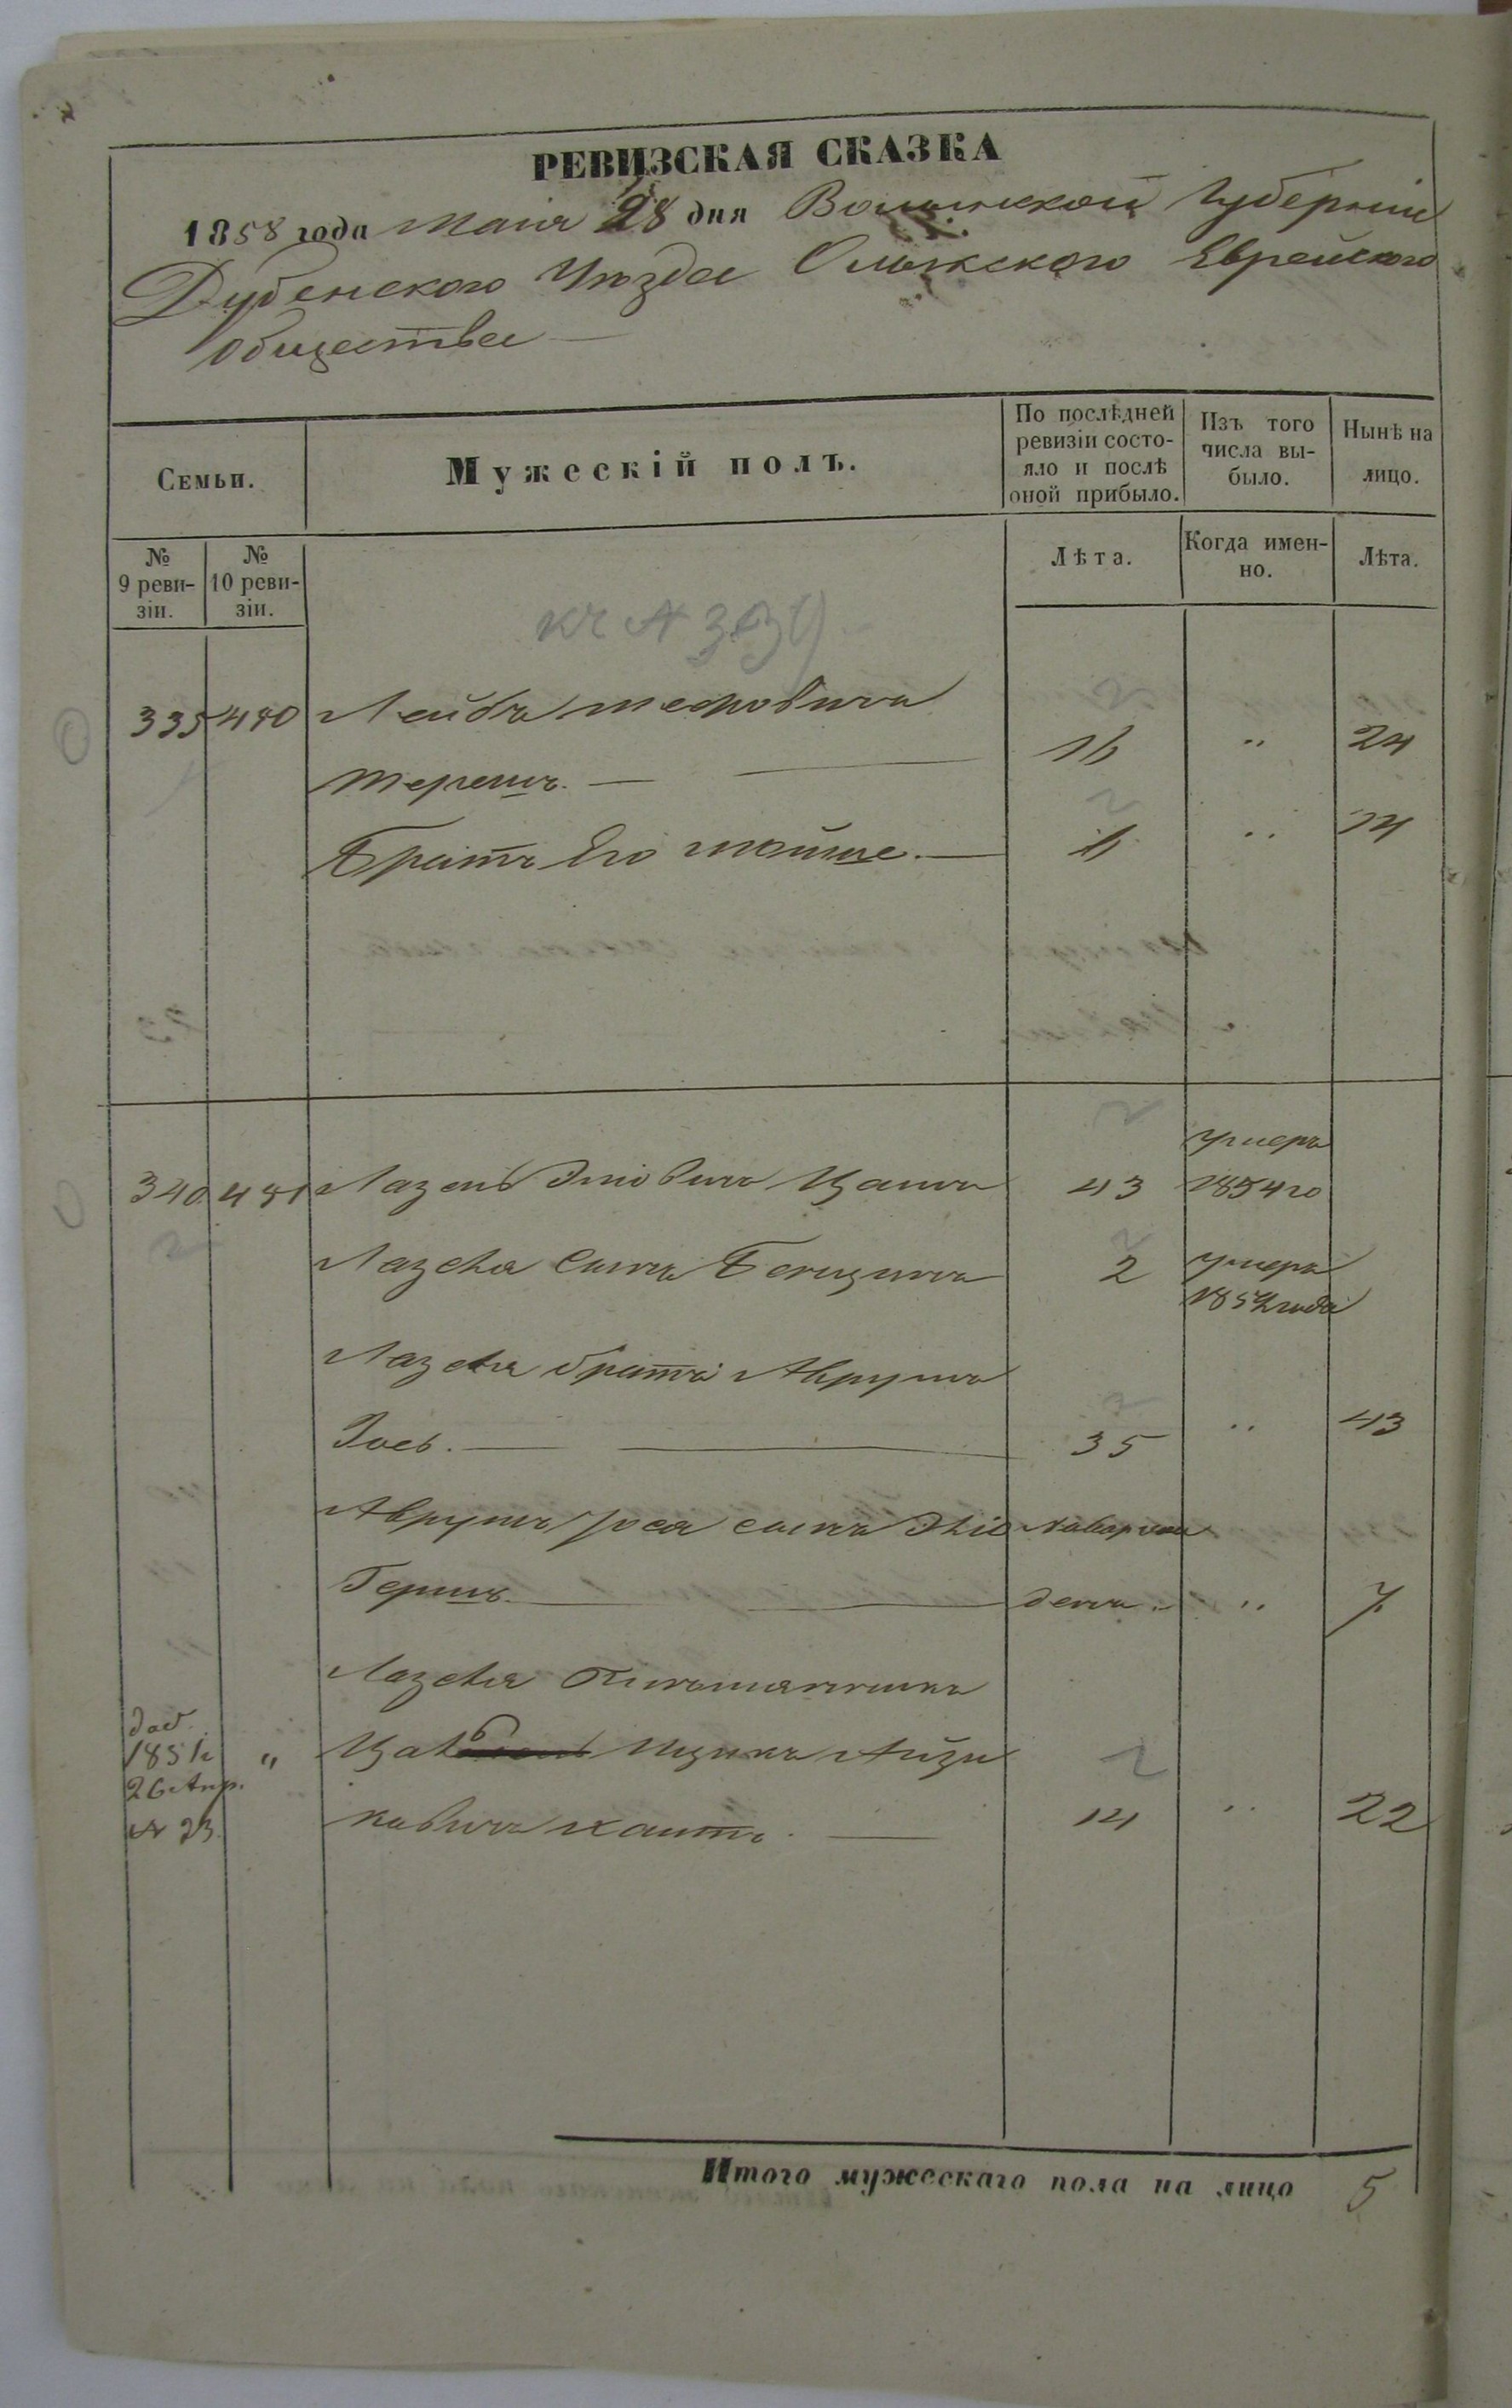 РЕВИЗСКАЯ СКАЗКА
1858 года Маія 28 дня Волынской Губерніи
Дубенского Уѣзда Олыкского Еврейского
Общества
Семьи.
Мужескій полъ.
По послѣдней ревизіи состо-яло и послѣ оной прибыло.
Изъ того числа вы-было.
Нынѣ на лицо.
№ 9 реви-зіи.
№ 10 реви-зіи.
Лѣта.
Когда имен-но.
Лѣта.
335 480 Лейба
16 " 24
Братъ Его Мойше. 6 " 14
340 481 Лазель Эліовичъ 43 умеръ 1854го
Лазеля сынъ Бенцинъ 2 умеръ 1852 года
Лазеля братъ Аврумъ
Іось. 35 " 43
Аврумъ Іося сынъ Эліо новорож
Гершъ. денъ. " 7
Лазеля
доп. 1851г 26 Апр. № 23
" Ицикъ Айзи
ковичъ 14 " 22
Итого мужескаго пола на лицо 5